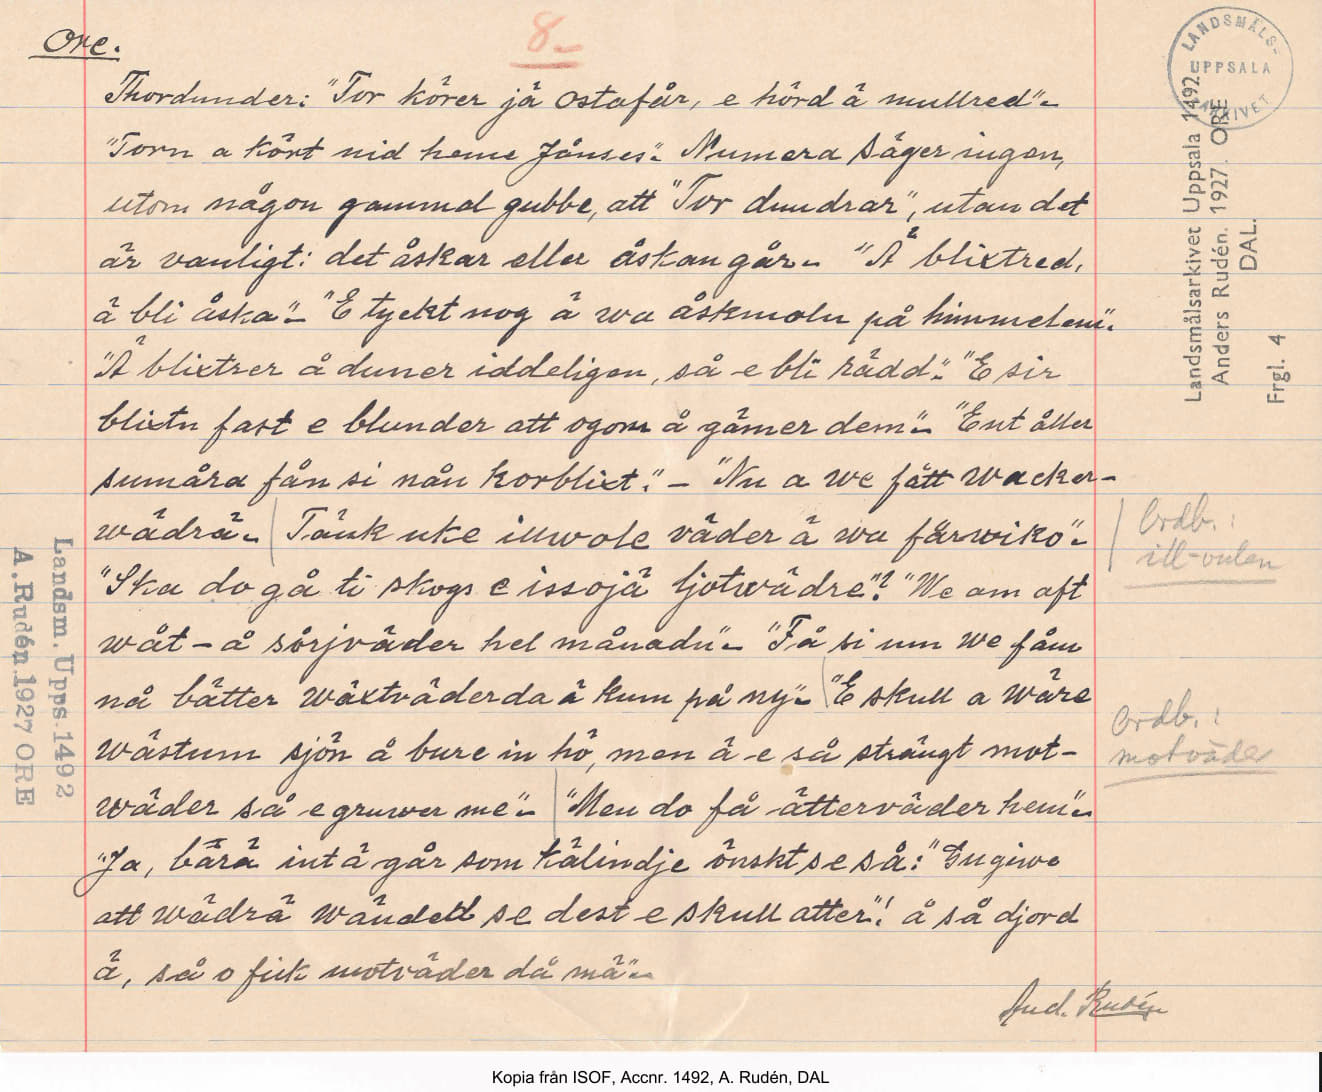 Ore.
8.
Thordunder: "Tor körer jä ostafår, e hörd ä mullred".
"Torn a kört nid heme Jånses". Numera säger ingen,
utom någon gammal gubbe, att "Tor dundrar", utan det
är vanligt: det åskar eller åskan går. "Ä blixtred,
ä bli åska". "E tyckt nog ä wa åskmoln på himmelen".
"Ä blixtrer å duner iddeligen, så e bli rädd". "E sir
blixtn fast e blunder att ogom å gämer dem". "Ent åller
sumåra fån si nån korblixt". - "Nu a we fått wacker-
wädrä. Tänk uke illwole väder ä wa färwiko".
"Ska do gå ti skogs e issojä ljotwädre"? "We am aft
wåt - å sörjväder hel månadn". "Få si um we fåm
nå bätter wäxtväder da ä kum på ny". "E skull a wäre
wästum sjön å bure in hö, men ä e så strängt mot-
wäder så e gruwer me". "Men do få ätterväder hem".
"Ja, bärä int ä går som kälindje önskt se så: "Gugiwe
att wädrä wänded se dest e skull atter"! å så djord
ä, så o fick motväder då mä".
And. Rudén
Ordb.:
ill-vulen
Ordb.:
motväder
LANDSMÅLS-
UPPSALA
ARKIVET
Landsmålsarkivet Uppsala 1492
Anders Rudén. 1927. ORE
DAL.
Frgl. 4
Landsm. Upps. 1492
A. Rudén. 1927 ORE
Kopia från ISOF, Accnr. 1492, A. Rudén, DAL